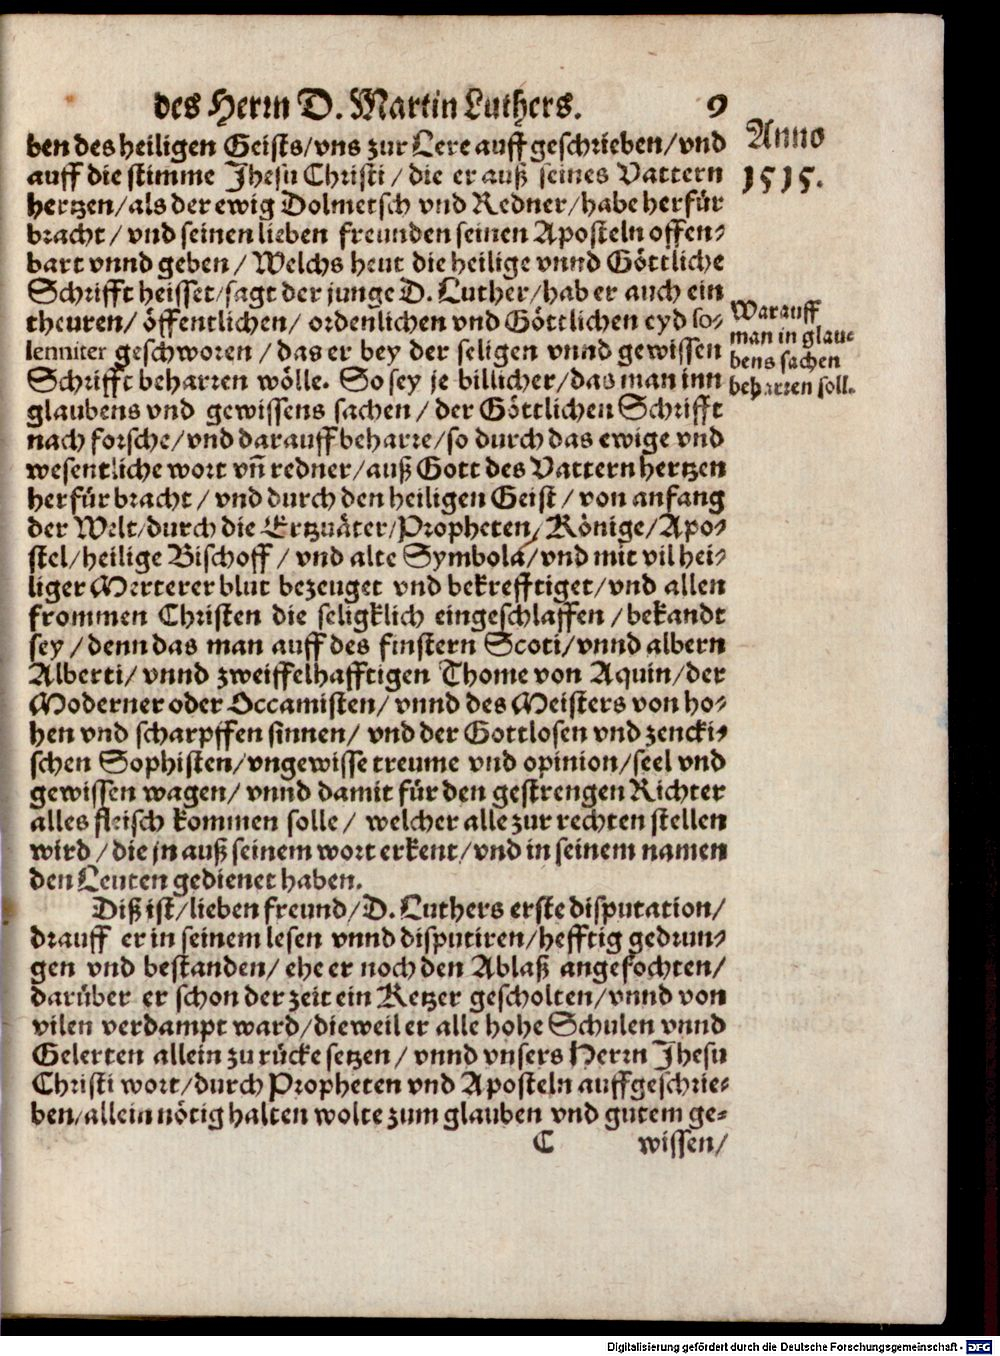 des Herrn D. Martin Luthers. 9
ben des heiligen Geists/vns zur Lere auffgeschrieben/vnd
auff die stimme Jhesu Christi / die er auß seines Vattern
hertzen/als der ewig Dolmetsch vnd Redner/habe herfür
bracht / vnd seinen lieben freunden seinen Aposteln offen-
bart vnnd geben / Welchs heut die heilige vnnd Göttliche
Schrifft heisset/sagt der junge D. Luther/hab er auch ein
theuren/ öffentlichen/ ordenlichen vnd Göttlichen eyd so-
lenniter geschworen / das er bey der seligen vnnd gewissen
Schrifft beharren wölle. So sey je billicher/das man inn
glaubens vnd gewissens sachen / der Göttlichen Schrifft
nach forsche/vnd darauff beharre/so durch das ewige vnd
wesentliche wort vñ redner/auß Gott des Vattern hertzen
herfür bracht / vnd durch den heiligen Geist / von anfang
der Welt/durch die Ertzuäter/Propheten/ Könige/Apo-
stel/heilige Bischoff / vnd alte Symbola/vnd mit vil hei-
liger Merterer blut bezeuget vnd bekrefftiget/vnd allen
frommen Christen die seligklich eingeschlaffen / bekandt
sey / denn das man auff des finstern Scoti/vnnd albern
Alberti/ vnnd zweiffelhafftigen Thome von Aquin/der
Moderner oder Occamisten/ vnnd des Meisters von ho-
hen vnd scharpffen sinnen/ vnd der Gottlosen vnd zencki-
schen Sophisten/vngewisse treume vnd opinion/seel vnd
gewissen wagen/ vnnd damit für den gestrengen Richter
alles fleisch kommen solle/ welcher alle zur rechten stellen
wird / die jn auß seinem wort erkent/vnd in seinem namen
den Leuten gedienet haben.
Diß ist/lieben freund/D. Luthers erste disputation/
drauff er in seinem lesen vnnd disputiren/hefftig gedrun-
gen vnd bestanden/ ehe er noch den Ablaß angefochten/
darüber er schon der zeit ein Ketzer gescholten/vnnd von
vilen verdampt ward/dieweil er alle hohe Schulen vnnd
Gelerten allein zu rücke setzen / vnnd vnsers Herrn Jhesu
Christi wort/durch Propheten vnd Aposteln auffgeschrie-
ben/allein nötig halten wolte zum glauben vnd gutem ge-
C wissen/
Anno
1515.
Warauff
man in glau-
bens sachen
beharren soll.
Digitalisierung gefördert durch die Deutsche Forschungsgemeinschaft - DFG